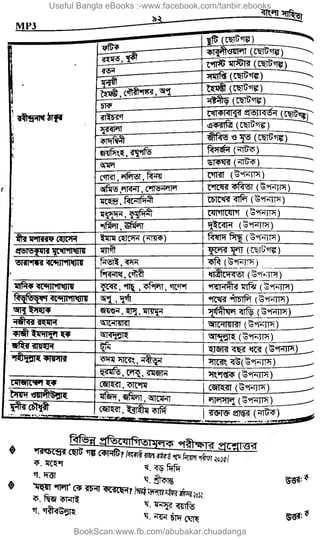 Useful Bangla eBooks :-www.facebook.com/tanbir.ebooks
MP3 ৯২ বাংলা সাহিত্য
ফটিক ছুটি (ছোটগল্প)
রহমত, খুকী কাবুলীওয়ালা (ছোটগল্প)
রতন পোস্ট মাস্টার (ছোটগল্প)
মৃন্ময়ী সমাপ্তি (ছোটগল্প)
হৈমন্তী, গৌরীশঙ্কর, অপু হৈমন্তী (ছোটগল্প)
চারু নষ্টনীড় (ছোটগল্প)
রবীন্দ্রনাথ ঠাকুর রাইচরণ খোকাবাবুর প্রত্যাবর্তন (ছোটগল্প)
সুরবালা একরাত্রি (ছোটগল্প)
কাদম্বিনী জীবিত ও মৃত (ছোটগল্প)
জয়সিংহ, রঘুপতি বিসর্জন (নাটক)
অমল ডাকঘর (নাটক)
গোরা, ললিতা, বিনয় গোরা (উপন্যাস)
অমিত, লাবন্য, শোভনলাল শেষের কবিতা (উপন্যাস)
মহেন্দ্র, বিনোদিনী চোখের বালি (উপন্যাস)
মধুসূদন, কুমুদিনী যোগাযোগ (উপন্যাস)
শর্মিলা, ঊর্মিলা দুইবোন (উপন্যাস)
মীর মশাররফ হোসেন ইমাম হোসেন (নায়ক) বিষাদ সিন্ধু (উপন্যাস)
প্রভাতকুমার মুখোপাধ্যায় ফুলের মূল্য (ছোটগল্প)
তারাশঙ্কর বন্দ্যোপাধ্যায় নিতাই, বসন কবি (উপন্যাস)
শিবনাথ, গৌরী ধাত্রীদেবতা (উপন্যাস)
মানিক বন্দ্যোপাধ্যায় কুবের, কপিলা, গণেশ পদ্মানদীর মাঝি (উপন্যাস)
বিভূতিভূষণ বন্দ্যোপাধ্যায় অপু, দূর্গা পথের পাঁচালি (উপন্যাস)
আবু ইসহাক জয়গুন, হাসু, মায়মুন সূর্যদীঘল বাড়ি (উপন্যাস)
নজীবর রহমান আনোয়ারা আনোয়ারা (উপন্যাস)
কাজী ইমদাদুল হক আবদুল্লাহ আব্দুল্লাহ (উপন্যাস)
জহির রায়হান টুনি হাজার বছর ধরে (উপন্যাস)
শহীদুল্লাহ কায়সার কদম সারেং, নবীতুন সারেং বউ (উপন্যাস)
হুরমতি, লেকু, রমজান সংশপ্তক (উপন্যাস)
মোজাম্মেল হক জোহরা জোহরা (উপন্যাস)
সৈয়দ ওয়ালীউল্লাহ মজিদ, জমিলা, আমেনা লালসালু (উপন্যাস)
মুনীর চৌধুরী জোহরা, ইব্রাহীম কার্দি রক্তাক্ত প্রান্তর (নাটক)
বিভিন্ন প্রতিযোগিতামূলক পরীক্ষার প্রশ্নোত্তর
শরৎচন্দ্রের ছোট গল্প কোনটি?
ক. মহেশ খ. বড় দিদি
গ. দত্তা ঘ. শ্রীকান্ত উত্তর: ক
'মহুয়া পালা' কে রচনা করেছেন?
ক. দ্বিজ কানাই খ. মনসুর বয়াতি
গ. গরীবউল্লাহ ঘ. নয়ন চাঁদ ঘোষ উত্তর: ক
BookScan:www.fb.com/abubakar.chuadanga